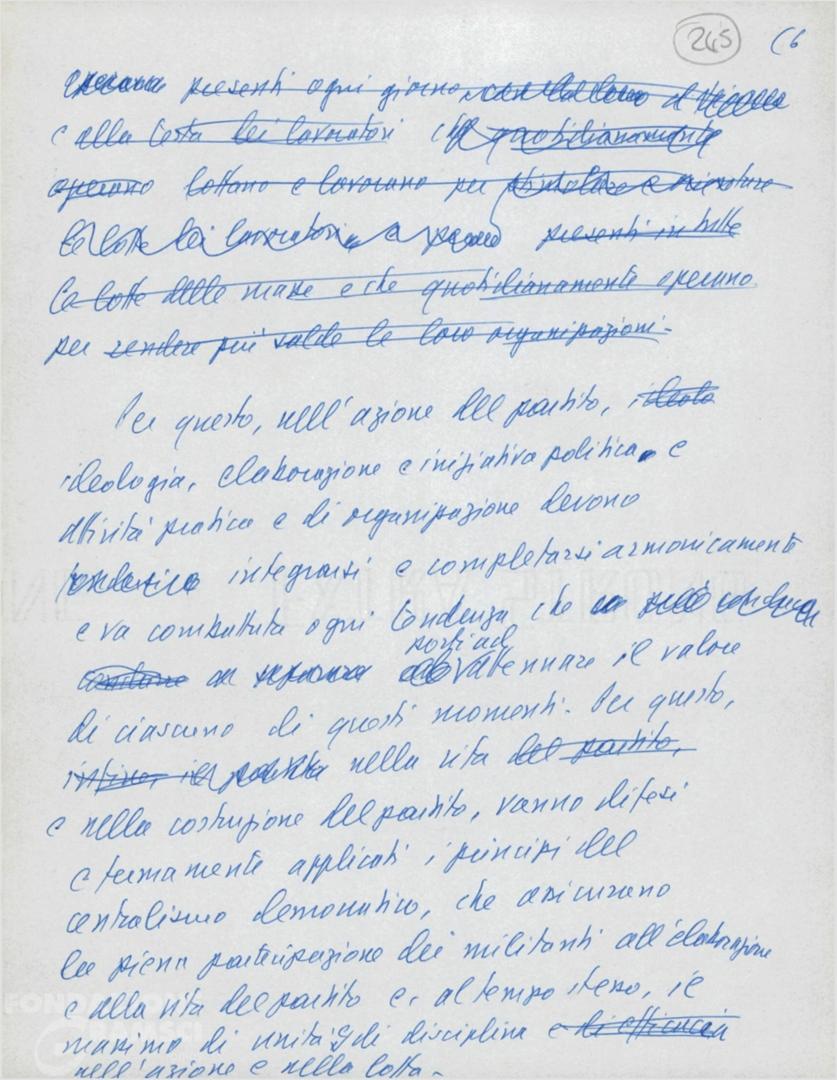 245 C6
presenti ogni giorno
e alla testa dei lavoratori che quotidianamente
operano lottano e lavorano per stimolare e
le lotte dei lavoratori, presenti in tutte
le lotte delle masse e che quotidianamente operano
per rendere più salde le loro organizzazioni.
Per questo, nell'azione del partito,
ideologia, elaborazione e iniziativa politica e
attività pratica e di organizzazione devono
integrarsi e completarsi armonicamente
e va combattuta ogni tendenza che
porti ad
attenuare il valore
di ciascuno di questi momenti. Per questo,
nella vita del partito,
e nella costruzione del partito, vanno difesi
e fermamente applicati i principi del
centralismo democratico, che assicurano
la piena partecipazione dei militanti all'elaborazione
e alla vita del partito e, al tempo stesso, il
massimo di unità e di disciplina e di efficacia
nell'azione e nella lotta.
FONDAZIONE
GRAMSCI